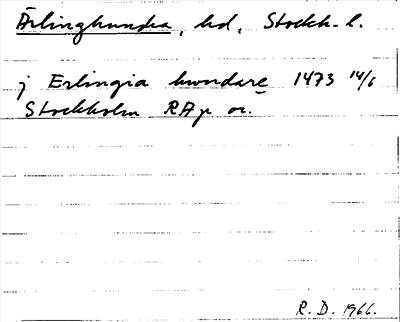 Ärlinghundra, hd, Stockh. l.
j Erlingia hwndare 1473 14/6
Stockholm RAp or.
R. D. 1966.